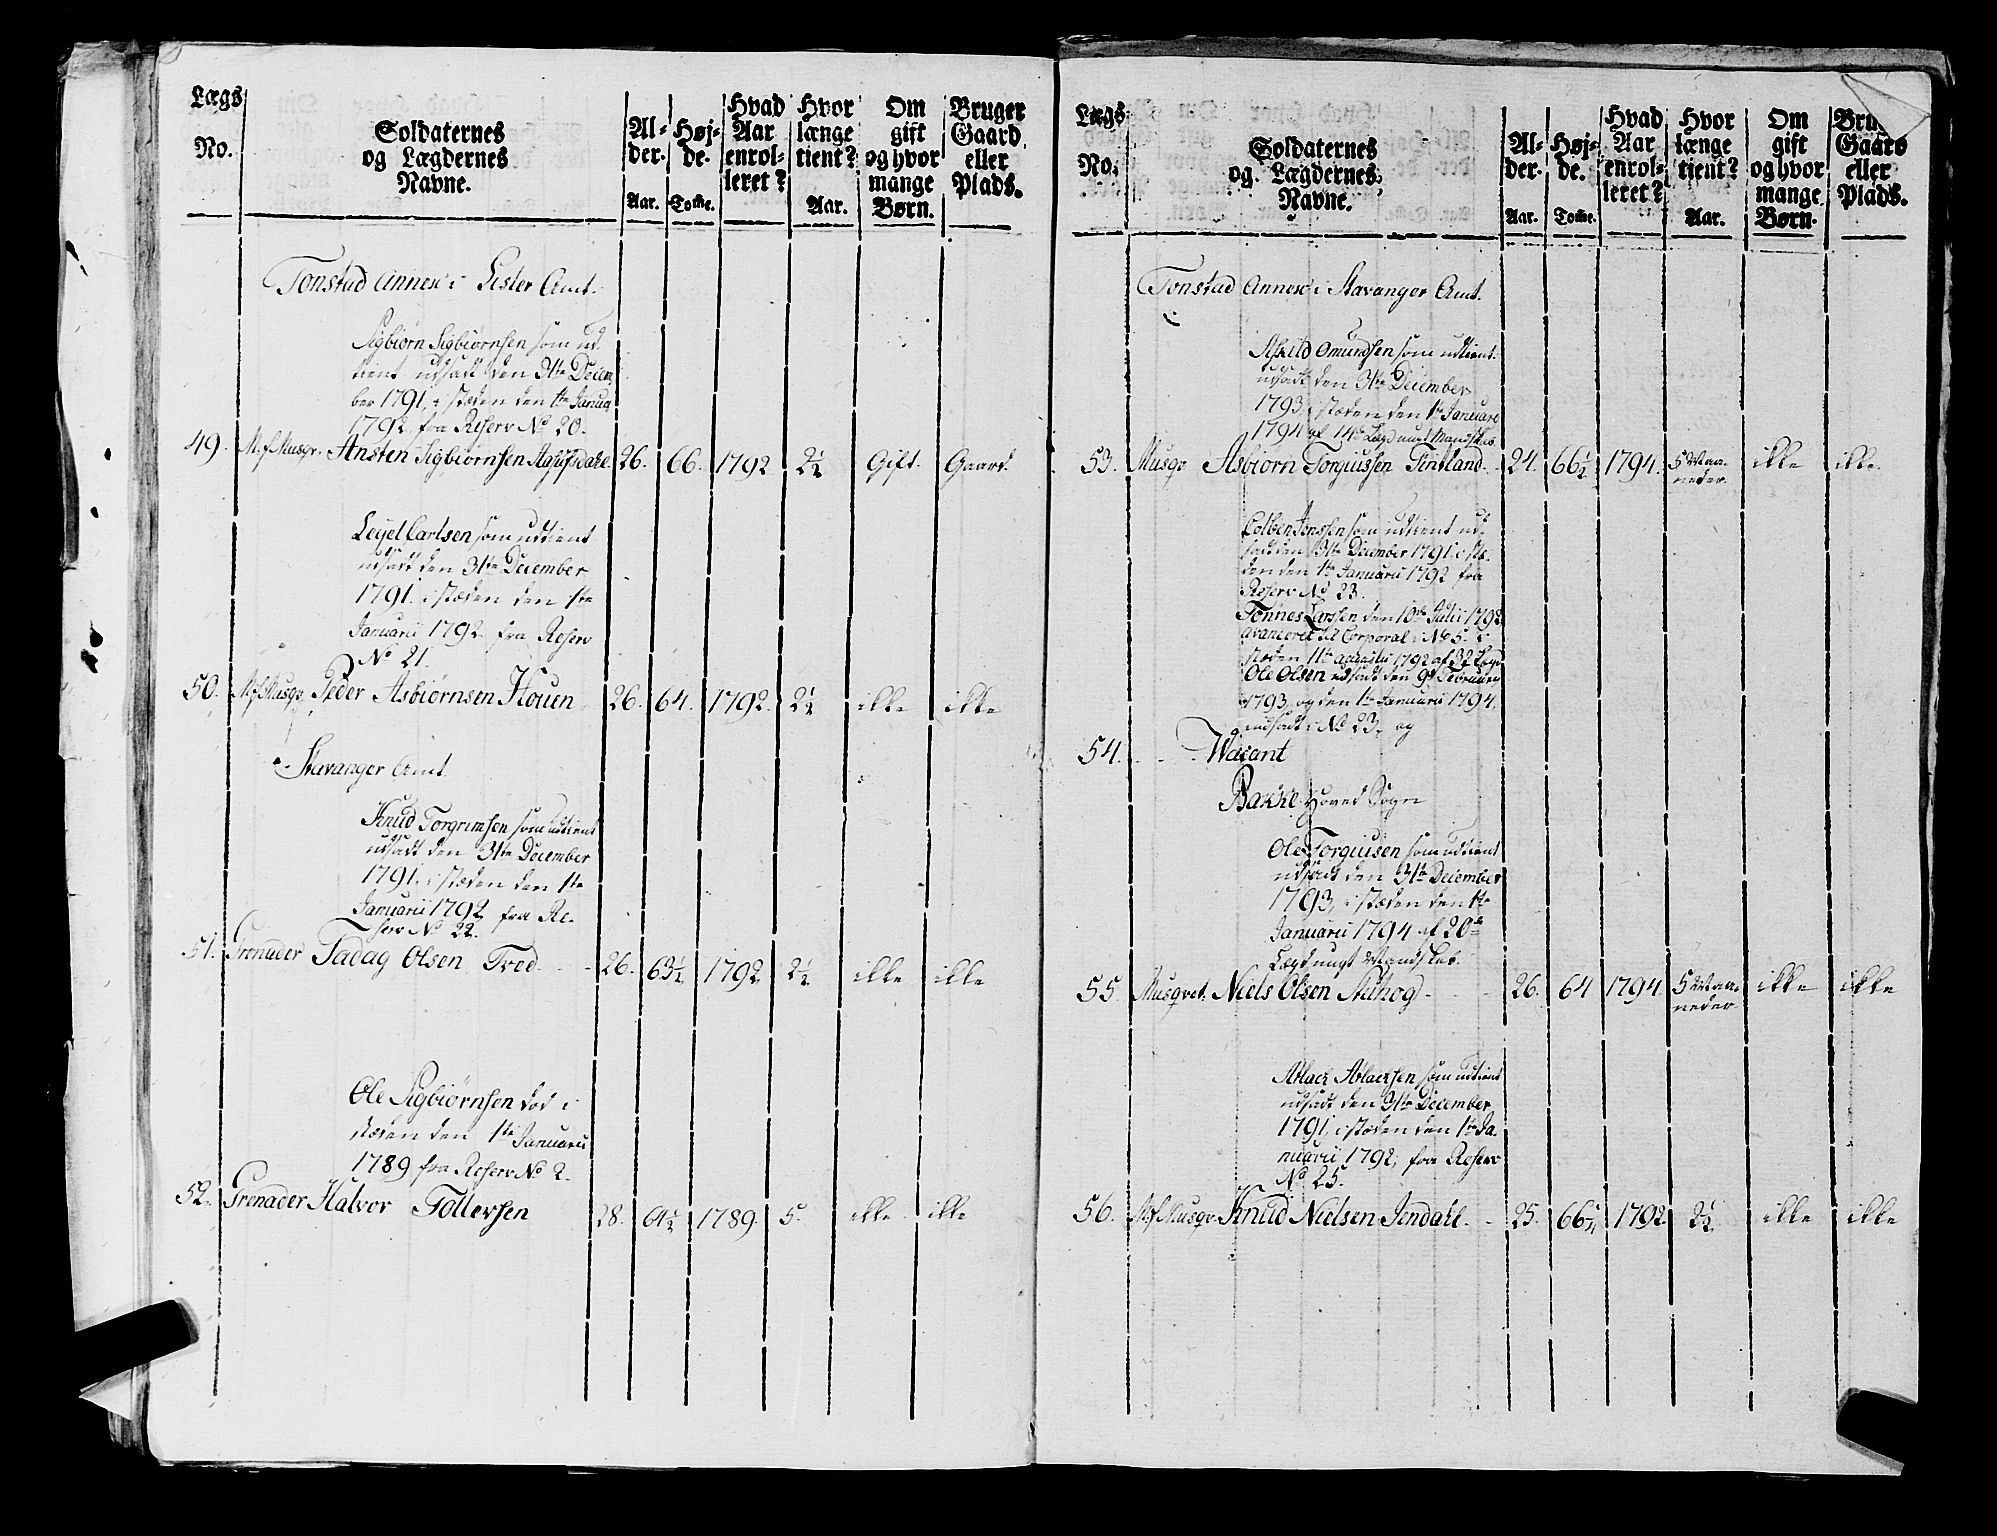 Lægs No.
Soldaternes og Lægdernes Navne.
Al- der. Aar.
Høj- de. Tomme.
Hvad Aar enrol- leret?
Hvor længe tient? Aar.
Om gift og hvor mange Børn.
Bruger Gaard eller Plads.
Tonstad Annex i Lister Amt.
Sigbiørn Sigbiørnsen som ud
tient udsadt den 31te Decem
ber 1791, i stæden den 1te Janua
1792 fra Reserv No 20.
49. M.f Musqv. Ansten Sigbiørnsen 26. 66. 1792 2½ Gift. Gaard.
Leyel Carlsen som udtient
udsadt den 31te December
1791. i stæden den 1te
Januarii 1792 fra Reserv
No 21.
50. M.f Musqv. Peder Asbiørnsen Houen 26. 64. 1792. 2½ ikke ikke
Stavanger Amt.
Knud Torgrimsen som udtient
udsadt den 31te December
1791, i stæden den 1te
Januarii 1792 fra Re-
serv No 22.
51. Grenader Tadag Olsen Tved 26. 63½ 1792 2½ ikke ikke
Ole Sigbiørnsen död i
stæden den 1te Januarii
1789 fra Reserv No 2.
52. Grenader Halvor Tollevsen 28. 1789. 5. ikke ikke
Lægs No.
Soldaternes og Lægdernes Navne.
Al- der. Aar.
Høj- de. Tomme.
Hvad Aar enrol- leret?
Hvor længe tient? Aar.
Om gift og hvor mange Børn.
Bruger Gaard eller Plads.
Tonstad Annex i Stavanger Amt.
Askild Omundsen som udtient
udsadt den 31te December
1793, i stæden den 1te Januarii
1794 af 14de Lægd ungt Mandskab
53. Musqv Asbiørn Torgiussen Fintland 24. 66½ 1794. 5 Maa- neder. ikke ikke.
Colben Jonssen som udtient ud-
sadt den 31te December 1791. i stæ
den den 1te Januarii 1792 fra
Reserv No 23.
Tönnes Larssen den 10de Julii 1792
avanceret til Corporal i No 5. i
stæden 11te Augustii 1792 af 32 Lægd
Ole Olsen udsadt den 9de Februarii
1793, og den 1te Januarii 1794
indsadt i No 23, og
54. Wacant
Bakke Hoved Sogn
Ole Torgiusen som udtient
udsadt den 31te December
1793, i stæden den 1te
Januarii 1794 af 20de
Lægd ungt Mandskab
55. Musqvet. Niels Olsen 26. 64 1794. 5 Maa- neder ikke ikke
Ablach Ablachsen som udtient
udsadt den 31te December
1791, i stæden den 1te Ja-
nuarii 1792, fra Reserv
No 25.
56. M.f Musqv. Knud Nielsen Jendall 25. 1792. 2½ ikke ikke